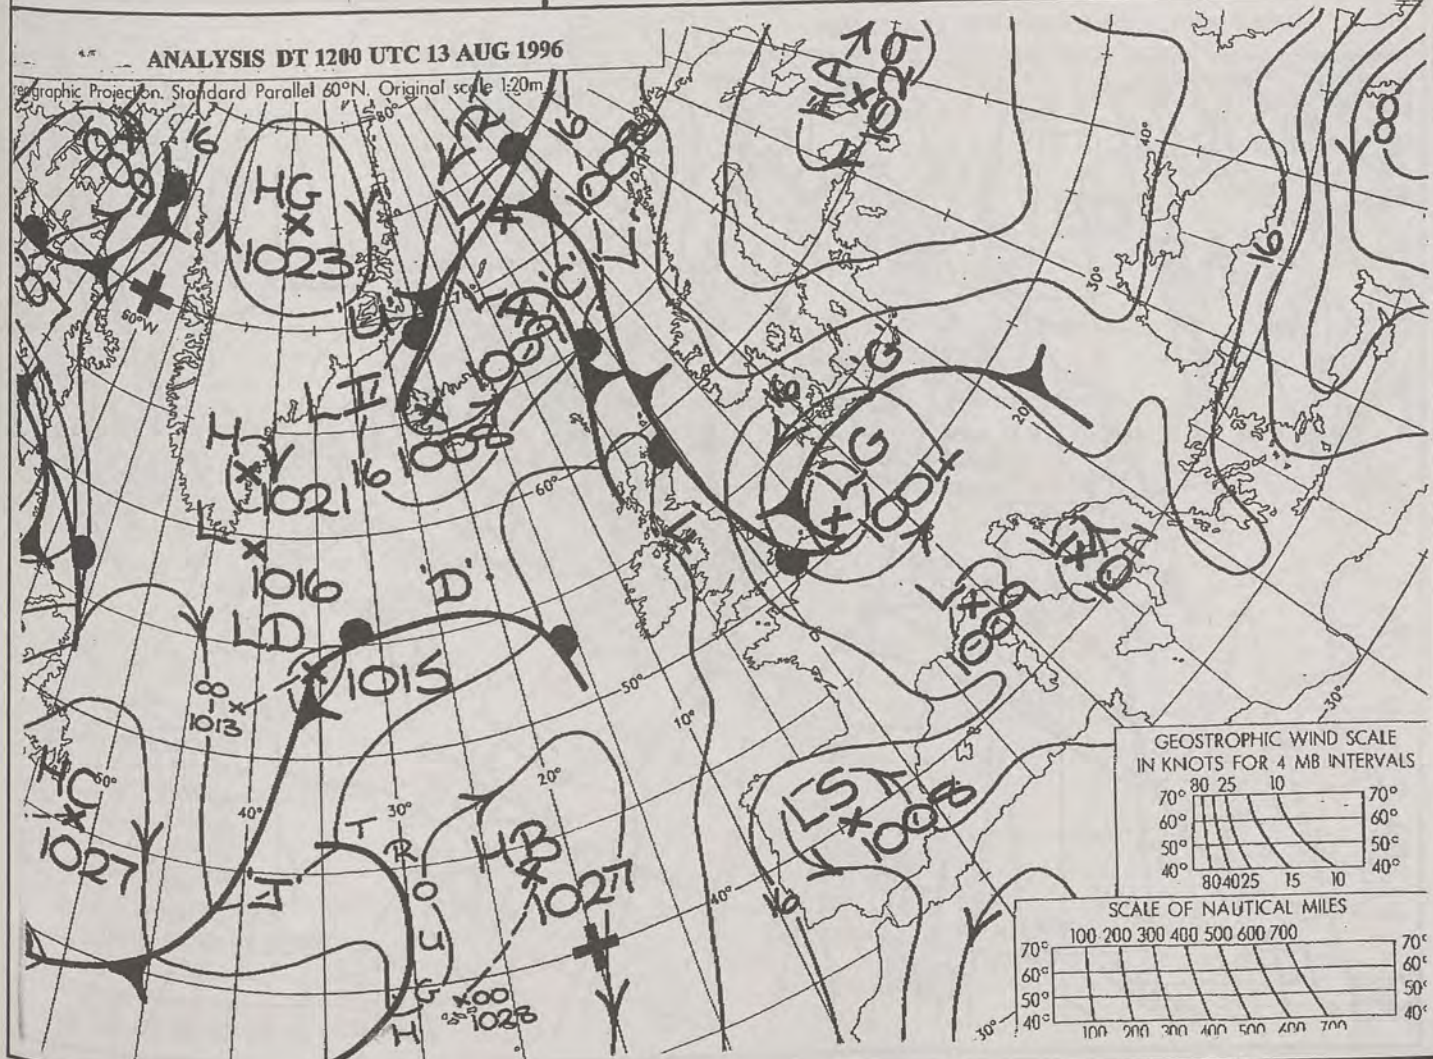 ANALYSIS DT 1200 UTC 13 AUG 1996
Projection. Standard Parallel 60°N. Original scale 1:20m
80°
16
HG
1023
R
L
16
1008
HA
1029
40°
8
16
30°
20°
50°W
70°
'C'
L
L
'U'
LI
1008
16
H
1021
16
'G'
LDG
1004
L
1016
60°
L
L
1011
L
1009
LD
'D'
1015
00
1013
50°
10°
30°
HC
1027
50°
40°
30°
20°
'J'
TROUGH
HB
1027
00
1028
40°
LS
1008
16
30°
GEOSTROPHIC WIND SCALE
IN KNOTS FOR 4 MB INTERVALS
80 25 10
70° 70°
60° 60°
50° 50°
40° 40°
80 40 25 15 10
SCALE OF NAUTICAL MILES
100 200 300 400 500 600 700
70° 70°
60° 60°
50° 50°
40° 40°
100 200 300 400 500 600 700